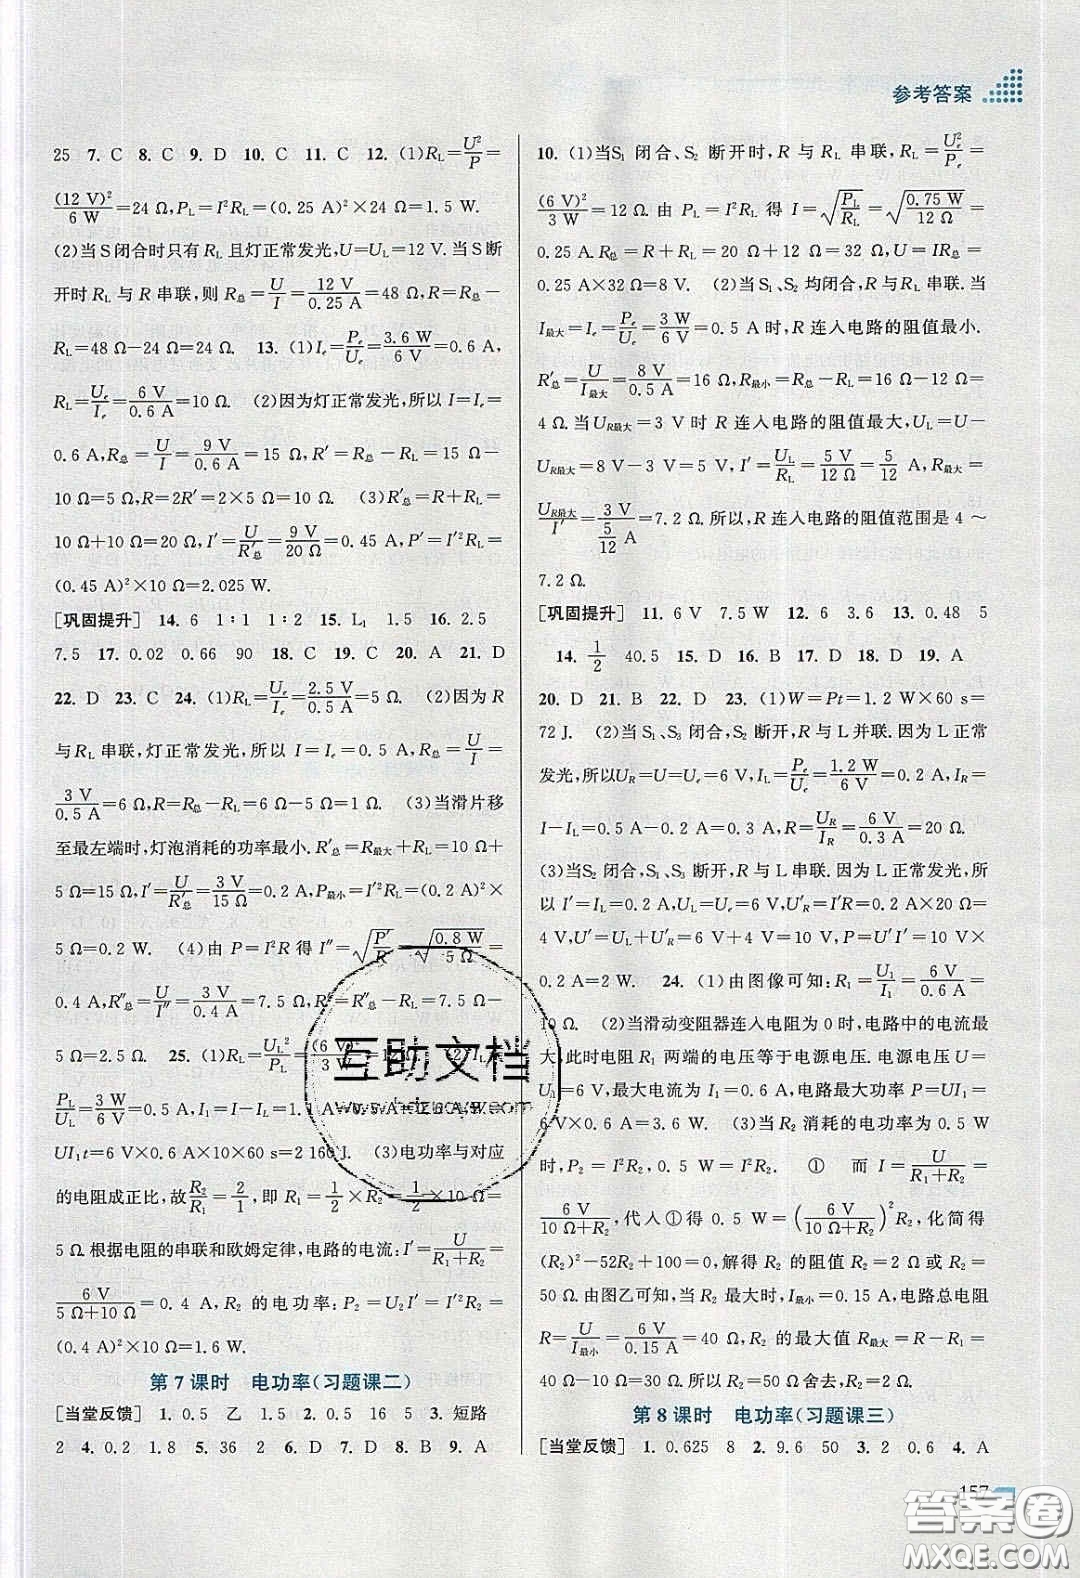 参考答案
25 7. C 8. C 9. D 10. C 11. C 12. (1)R_L=U²/P=
(12 V)²/6 W=24 Ω,P_L=I²R_L=(0.25 A)²×24 Ω=1.5 W.
(2)当S闭合时只有 R_L 且灯正常发光,U=U_L=12 V.当S断
开时R_L与R串联,则R总=U/I=12 V/0.25 A=48 Ω,R=R总-
R_L=48 Ω-24 Ω=24 Ω. 13. (1)I_e=P_e/U_e=3.6 W/6 V=0.6 A,
R_L=U_e/I_e=6 V/0.6 A=10 Ω. (2)因为灯正常发光,所以 I=I_e=
0.6 A,R总=U/I=9 V/0.6 A=15 Ω,R′=R总-R_L=15 Ω-
10 Ω=5 Ω,R=2R′=2×5 Ω=10 Ω. (3)R′总=R+R_L=
10 Ω+10 Ω=20 Ω,I′=U/R′总=9 V/20 Ω=0.45 A,P=I′²R_L=
(0.45 A)²×10 Ω=2.025 W.
[巩固提升] 14. 6 1∶1 1∶2 15. L₁ 1.5 16. 2.5
7.5 17. 0.02 0.66 90 18. C 19. C 20. A 21. D
22. D 23. C 24. (1)R_L=U_e/I_e=2.5 V/0.5 A=5 Ω. (2)因为 R
与R_L串联,灯正常发光,所以 I=I_e=0.5 A,R总=U/I=
3 V/0.5 A=6 Ω,R=R总-R_L=6 Ω-5 Ω=1 Ω. (3)当滑片移
至最左端时,灯泡消耗的功率最小.R′总=R最大+R_L=10 Ω+
5 Ω=15 Ω,I′=U/R′总=3 V/15 Ω=0.2 A,P最小=I′²R_L=(0.2 A)²×
5 Ω=0.2 W. (4)由 P=I²R 得 I″=√(P′/R)=√(0.8 W/5 Ω)=
0.4 A,R″总=U/I″=3 V/0.4 A=7.5 Ω,R″=R″总-R_L=7.5 Ω-
5 Ω=2.5 Ω. 25. (1)R_L=U_L²/P_L=(6 V)²/3 W
P_L/U_L=3 W/6 V=0.5 A,I₁=I-I_L=1.1 A-0.5 A=0.6 A,W=
UI₁t=6 V×0.6 A×10×60 s=2 160 J. (3)电功率与对应
的电阻成正比,故R₂/R₁=2/1,即 R₁=1/2×R₂=1/2×10 Ω=
5 Ω.根据电阻的串联和欧姆定律,电路的电流:I′=U/(R₁+R₂)=
6 V/(5 Ω+10 Ω)=0.4 A,R₂ 的电功率:P₂=U₂I′=I′²R₂=
(0.4 A)²×10 Ω=1.6 W.
第 7 课时 电功率(习题课二)
[当堂反馈] 1. 0.5 乙 1.5 2. 0.5 16 5 3. 短路
2 4. 0.2 1.8 5. 36 2 6. 2 7. D 8. B 9. A
10. (1)当S₁ 闭合、S₂ 断开时,R 与 R_L 串联,R_L=U_e²/P_e=
(6 V)²/3 W=12 Ω. 由 P_L=I²R_L 得 I=√(P_L/R_L)=√(0.75 W/12 Ω)=
0.25 A.R总=R+R_L=20 Ω+12 Ω=32 Ω,U=IR总=
0.25 A×32 Ω=8 V. (2)当 S₁、S₂ 均闭合时,R 与R_L串联.当
I最大=I_e=P_e/U_e=3 W/6 V=0.5 A时,R连入电路的阻值最小.
R′总=U/I最大=8 V/0.5 A=16 Ω,R最小=R总-R_L=16 Ω-12 Ω=
4 Ω.当 U_R最大=3 V 时 R 连入电路的阻值最大,U_L=U-
U_R最大=8 V-3 V=5 V,I′=U_L/R_L=5 V/12 Ω=5/12 A,R最大=
U_R最大/I′=3 V/(5/12 A)=7.2 Ω.所以,R连入电路的阻值范围是 4～
7.2 Ω.
[巩固提升] 11. 6 V 7.5 W 12. 6 3.6 13. 0.48 5
14. 1/2 40.5 15. D 16. B 17. D 18. D 19. A
20. D 21. B 22. D 23. (1)W=Pt=1.2 W×60 s=
72 J. (2)当 S₁、S₃ 闭合,S₂ 断开,R 与 L 并联.因为 L 正常
发光,所以U_R=U=U_e=6 V,I_L=P_e/U_e=1.2 W/6 V=0.2 A,I_R=
I-I_L=0.5 A-0.2 A=0.3 A,R=U_R/I_R=6 V/0.3 A=20 Ω.
(3)当S₂闭合,S₁、S₃断开,R 与L串联.因为L正常发光,所
以 I′=I_L=0.2 A,U_L=U_e=6 V,U′_R=I′R=0.2 A×20 Ω=
4 V,U′=U_L+U′_R=6 V+4 V=10 V,P=U′I′=10 V×
0.2 A=2 W. 24. (1)由图像可知:R₁=U₁/I₁=6 V/0.6 A=
10 Ω. (2)当滑动变阻器连入电阻为 0 时,电路中的电流最
大,此时电阻 R₁ 两端的电压等于电源电压.电源电压 U=
U₁=6 V,最大电流为 I₁=0.6 A,电路最大功率 P=UI₁=
6 V×0.6 A=3.6 W. (3)当 R₂ 消耗的电功率为 0.5 W
时,P₂=I²R₂,即 0.5 W=I²R₂. ① 而 I=U/(R₁+R₂)=
6 V/(10 Ω+R₂),代人①得 0.5 W=(6 V/(10 Ω+R₂))²R₂,化简得
(R₂)²-52R₂+100=0,解得 R₂ 的阻值 R₂=2 Ω 或 R₂=
50 Ω.由图乙可知,当 R₂ 最大时,I最小=0.15 A,电路总电阻
R=U/I最小=6 V/0.15 A=40 Ω,R₂ 的最大值 R最大=R-R₁=
40 Ω-10 Ω=30 Ω.所以R₂=50 Ω舍去,R₂=2 Ω.
第 8 课时 电功率(习题课三)
[当堂反馈] 1. 0.625 8 2. 9.6 50 3. 2 0.6 4. A
157
互助文档
答案圈
MXQE.COM